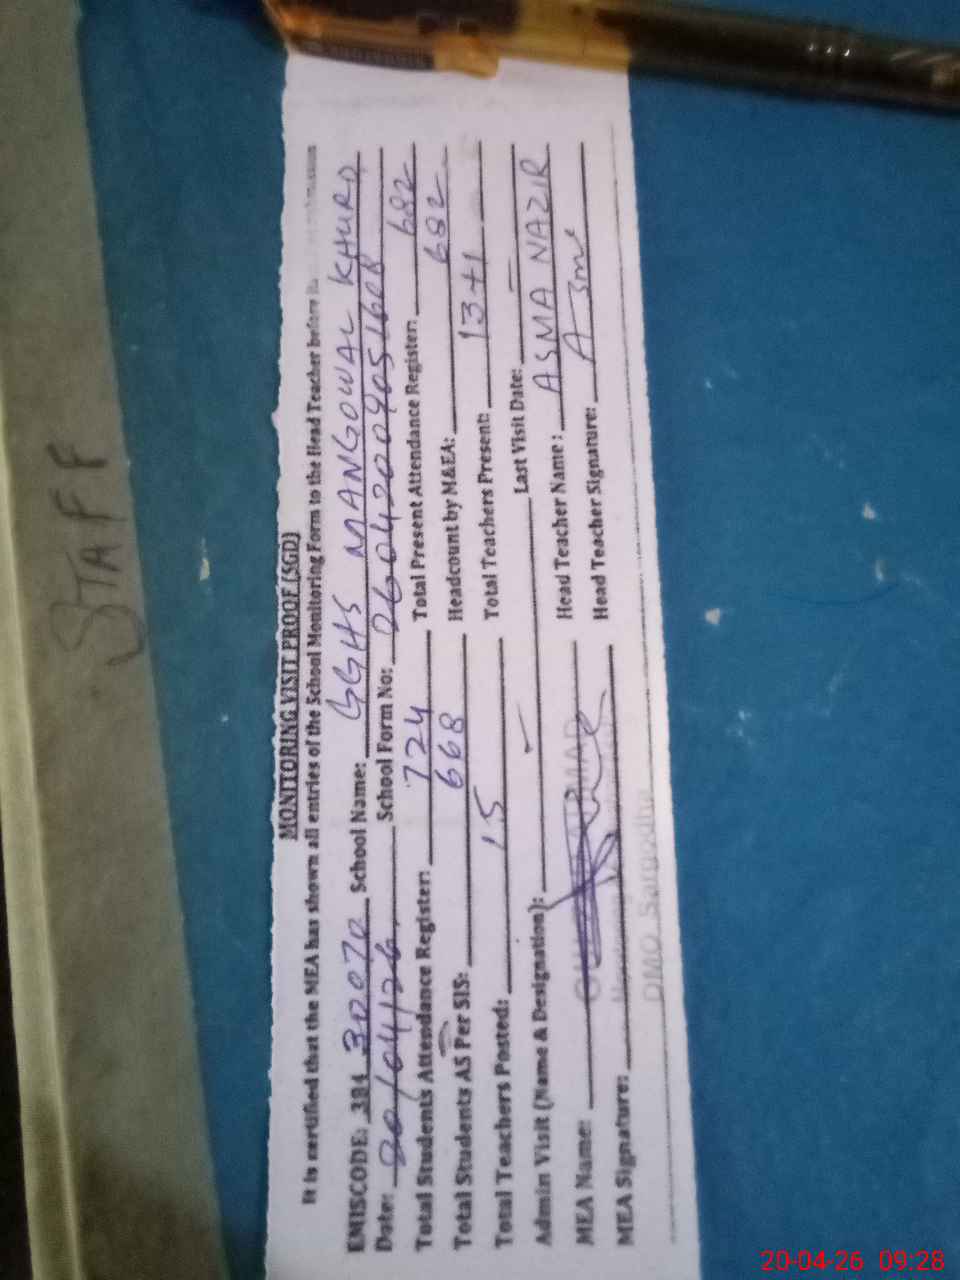 STAFF
MONITORING VISIT PROOF (SGD)
It is certified that the MEA has shown all entries of the School Monitoring Form to the Head Teacher before its
EMISCODE: 384 30070 School Name: GGHS MANGOWAL KHURD
Date: 20/04/26 School Form No:
Total Students Attendance Register: 724 Total Present Attendance Register: 682
Total Students AS Per SIS: 668 Headcount by M&EA: 682
Total Teachers Posted: 15 Total Teachers Present: 13+1
Admin Visit (Name & Designation): Last Visit Date:
MEA Name: Head Teacher Name: ASMA NAZIR
MEA Signature: Head Teacher Signature:
DMO Sargodha
20-04-26 09:28